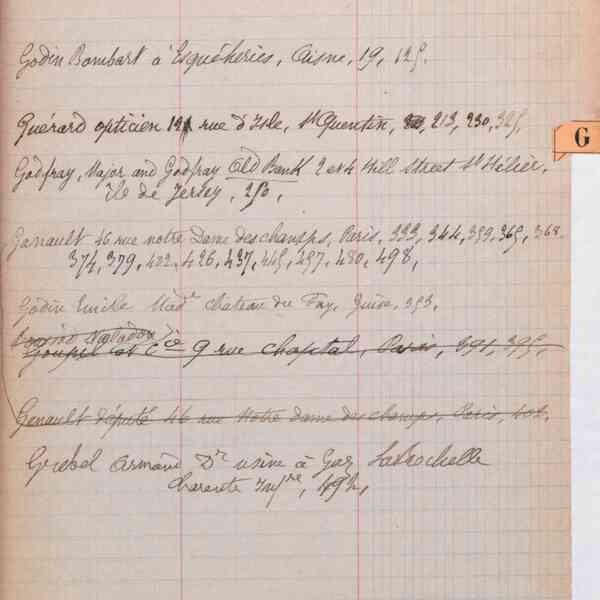 Godin Bombart à Esquéheries, Aisne, 19, 125.
G
Guérard opticien 121 rue d'Isle, St Quentin, 213, 230, 325,
Godfray, Major and Godfray Old Bank 2 et 4 Hill Street St Hélier,
Ile de Jersey, 250,
Ganault 46 rue notre Dame des champs, Paris, 333, 344, 359, 365, 368.
374, 379, 422, 426, 437, 445, 457, 480, 498,
Godin Emile Château du Fay, Guise, 353.
Goupil et Cie 9 rue Chaptal, Paris, 391, 395,
Genault député 46 rue Notre Dame des champs, Paris, 402.
Armand Dr usine à Gaz, LaRochelle
Charente Infre, 492,